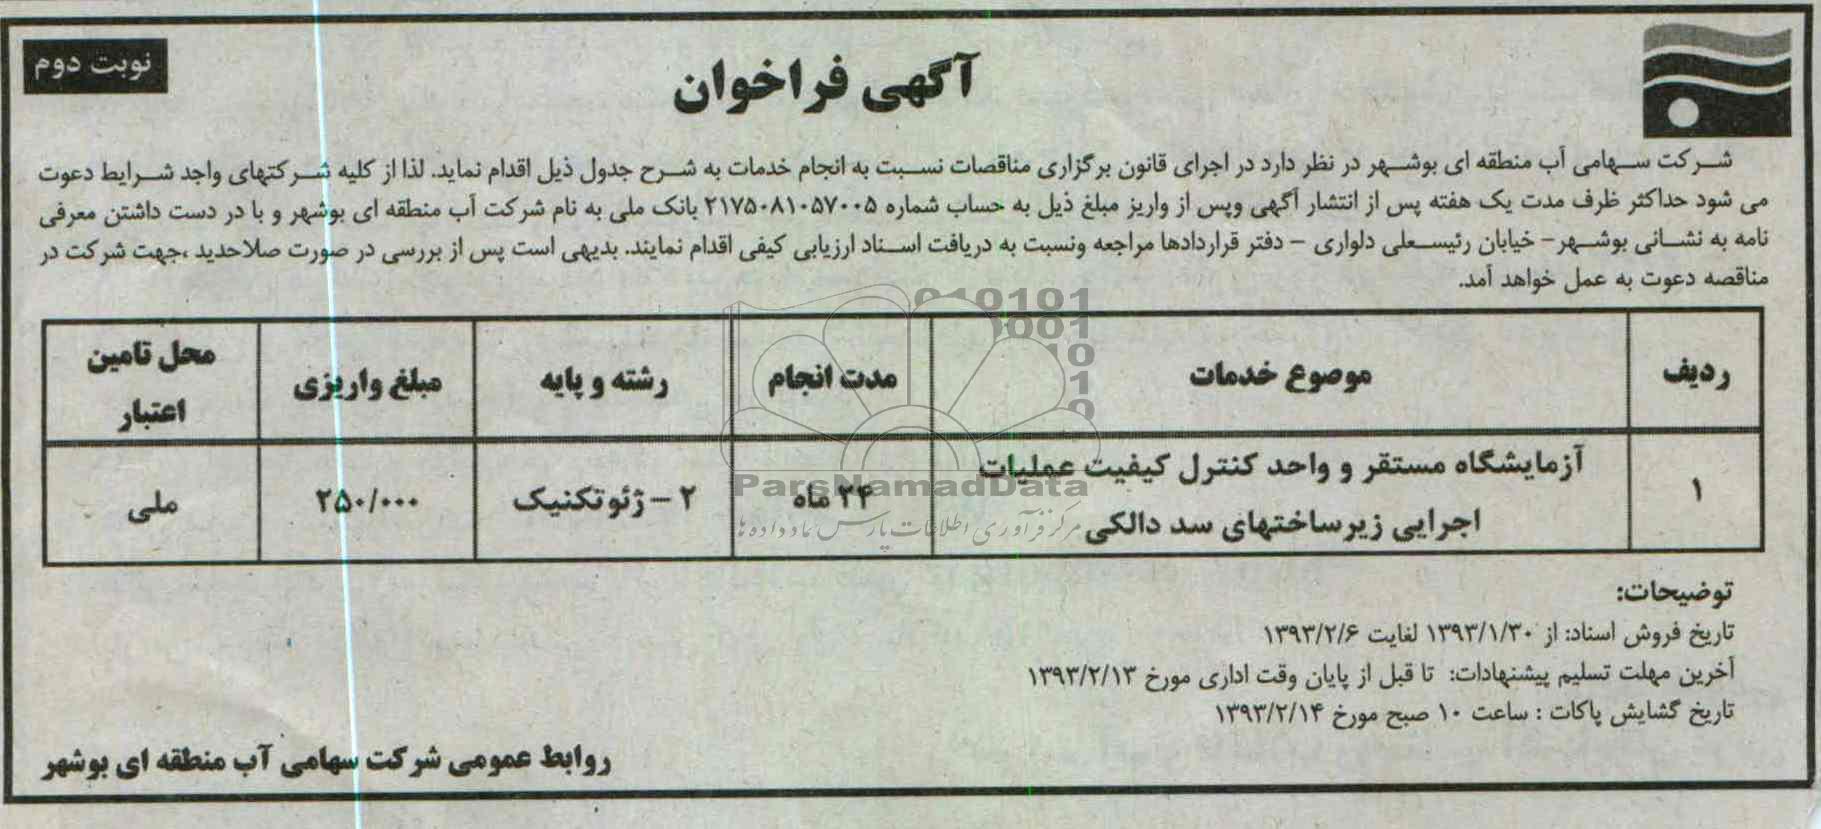 نوبت دوم
آگهی فراخوان
شرکت سهامی آب منطقه ای بوشهر در نظر دارد در اجرای قانون برگزاری مناقصات نسبت به انجام خدمات به شرح جدول ذیل اقدام نماید. لذا از کلیه شرکتهای واجد شرایط دعوت
می شود حداکثر ظرف مدت یک هفته پس از انتشار آگهی وپس از واریز مبلغ ذیل به حساب شماره ۲۱۷۵۰۸۱۰۵۷۰۰۵ بانک ملی به نام شرکت آب منطقه ای بوشهر و با در دست داشتن معرفی
نامه به نشانی بوشهر- خیابان رئیسعلی دلواری - دفتر قراردادها مراجعه ونسبت به دریافت اسناد ارزیابی کیفی اقدام نمایند. بدیهی است پس از بررسی در صورت صلاحدید ،جهت شرکت در
مناقصه دعوت به عمل خواهد آمد.
ردیف موضوع خدمات مدت انجام رشته و پایه مبلغ واریزی محل تامین
اعتبار
۱ آزمایشگاه مستقر و واحد کنترل کیفیت عملیات
اجرایی زیرساختهای سد دالکی ۲۴ ماه ۲ - ژئوتکنیک ۲۵۰/۰۰۰ ملی
ParsNamadData
مرکز فرآوری اطلاعات پارس نماد داده ها
توضیحات:
تاریخ فروش اسناد: از ۱۳۹۳/۱/۳۰ لغایت ۱۳۹۳/۲/۶
آخرین مهلت تسلیم پیشنهادات: تا قبل از پایان وقت اداری مورخ ۱۳۹۳/۲/۱۳
تاریخ گشایش پاکات : ساعت ۱۰ صبح مورخ ۱۳۹۳/۲/۱۴
روابط عمومی شرکت سهامی آب منطقه ای بوشهر